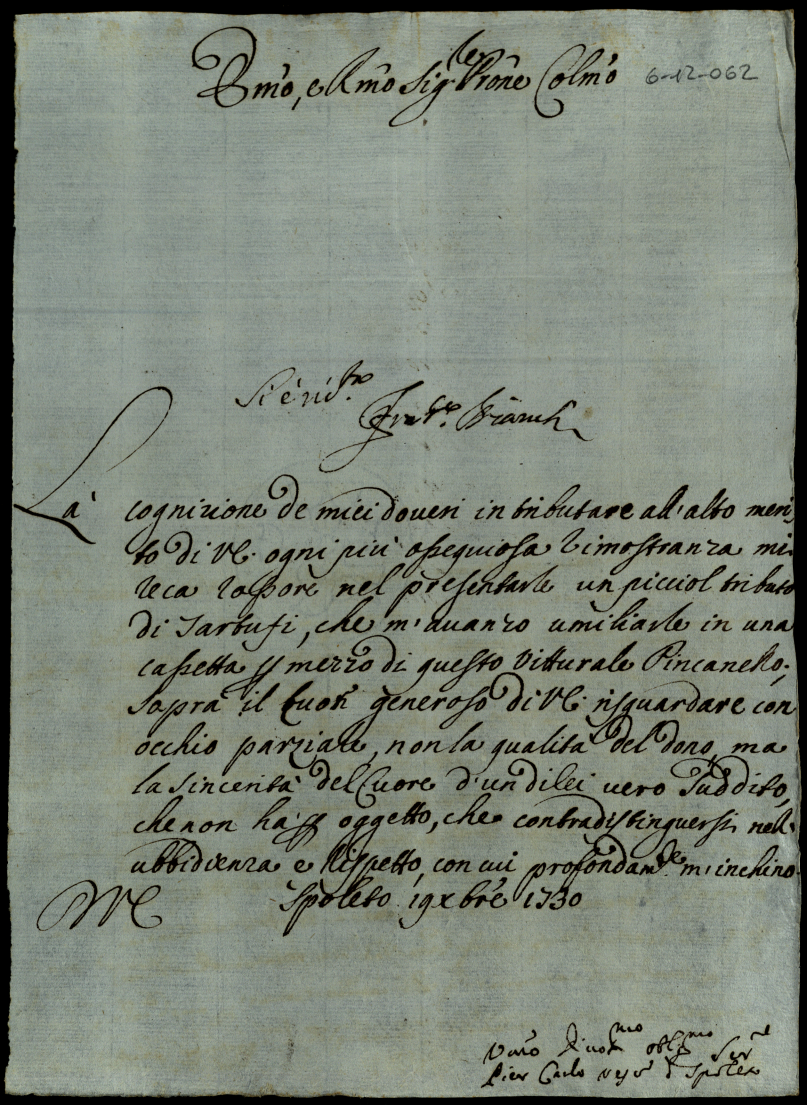 Emo, e Rmo Sig.re Prone Colmo 6-12-062
Si è ris.to
Fran.co Bianch
La cognizione de miei doveri in tributare all'alto meri
to di VE. ogni più ossequiosa dimostranza mi
reca rapore nel presentarle un picciol tributo
di Tartufi, che m'avanzo umiliarle in una
cassetta p mezzo di questo Vitturale Pincanello.
Saprà il Cuor generoso di VE. risguardare con
occhio parziale, non la qualità del dono, ma
la sincerità del Cuore d'un di lei vero Suddito,
che non hà p oggetto, che contradistinguersi nell'
ubbidienza e Rispetto, con cui profondam.te m'inchino.
DVE Spoleto 19 xbre 1730
Vmo Divot.mo obl.mo Ser.e
Pier Carlo vesc.o di Spoleto